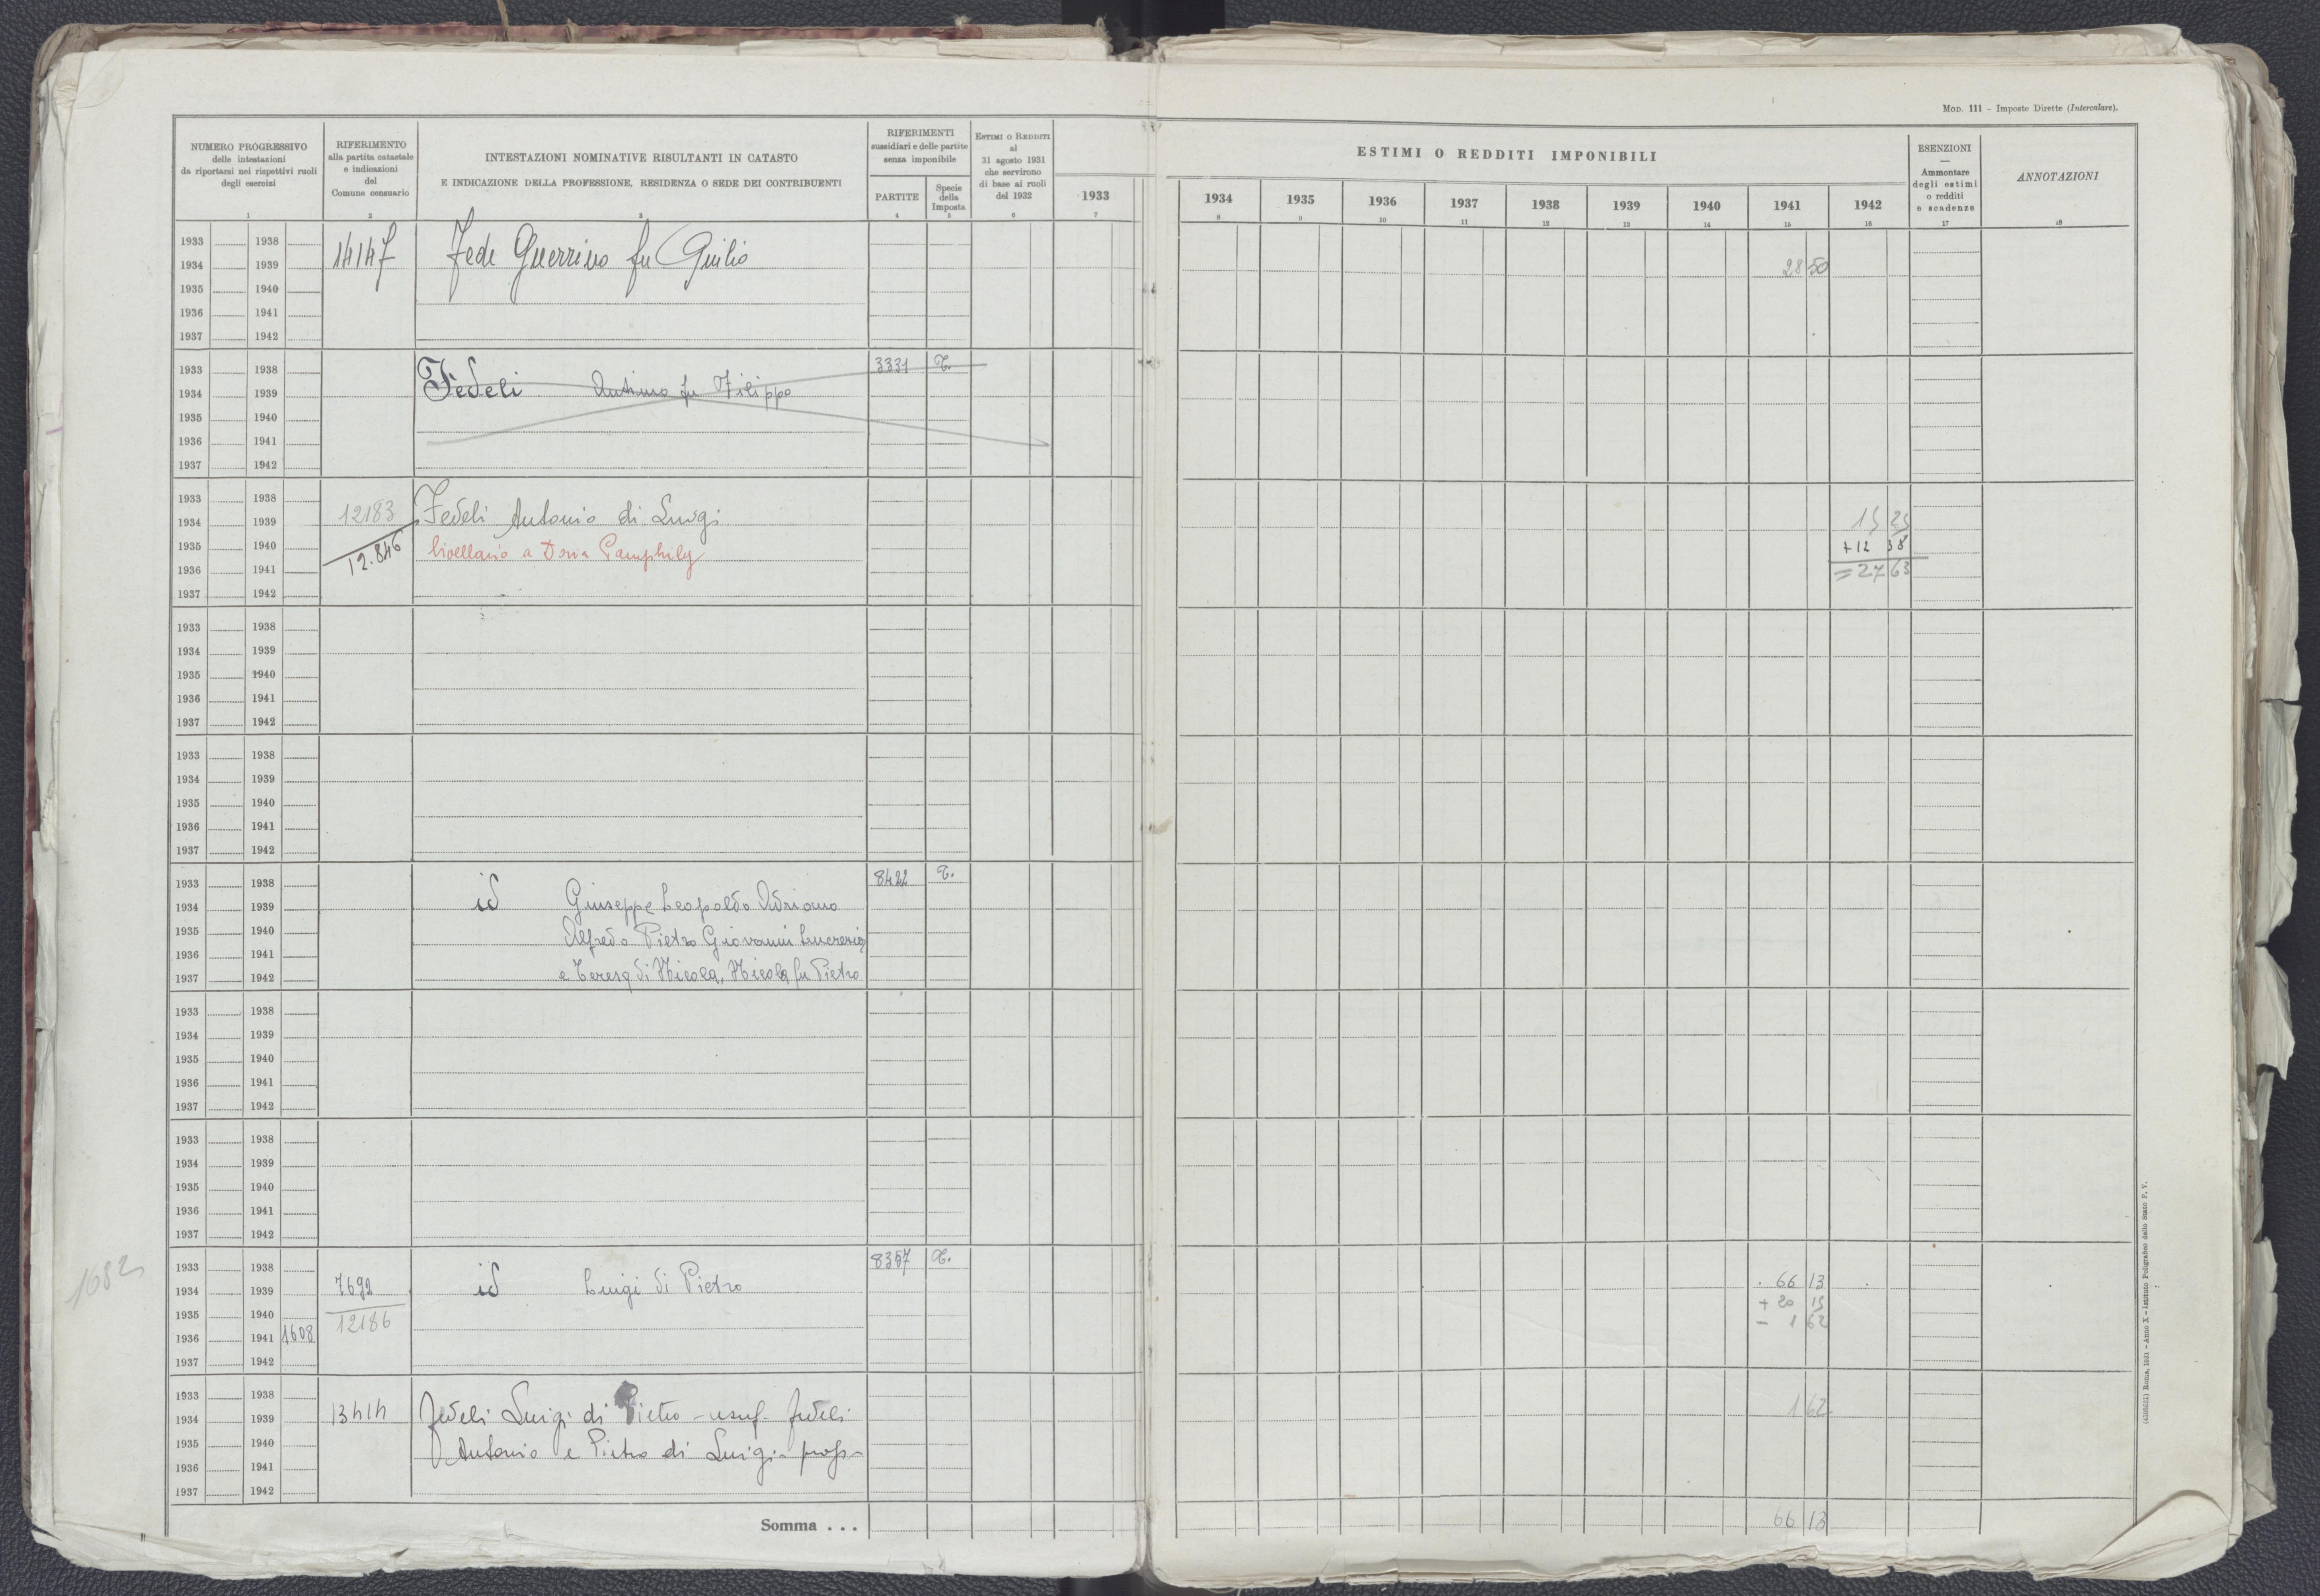 MOD. 111 - Imposte Dirette (Intercalare).
NUMERO PROGRESSIVO
delle intestazioni
da riportarsi nei rispettivi ruoli
degli esercizi
1
RIFERIMENTO
alla partita catastale
e indicazioni
del
Comune censuario
2
INTESTAZIONI NOMINATIVE RISULTANTI IN CATASTO
E INDICAZIONE DELLA PROFESSIONE, RESIDENZA O SEDE DEI CONTRIBUENTI
3
RIFERIMENTI
sussidiari e delle partite
senza imponibile
PARTITE
4
Specie
della
Imposta
5
ESTIMI O REDDITI
al
31 agosto 1931
che servirono
di base ai ruoli
del 1932
6
1933
7
ESTIMI O REDDITI IMPONIBILI
1934 1935 1936 1937 1938 1939 1940 1941 1942
8 9 10 11 12 13 14 15 16
ESENZIONI
—
Ammontare
degli estimi
o redditi
e scadenze
17
ANNOTAZIONI
18
1933 1938
1934 1939 14147 Fede Guerrino fu Giulio 28 50
1935 1940
1936 1941
1937 1942
1933 1938 3331 T.
1934 1939 Fedeli Antimo fu Filippo
1935 1940
1936 1941
1937 1942
1933 1938
1934 1939 12183 Fedeli Antonio di Luigi 15 25
1935 1940 12.846 livellario a Doria Pamphily +12 38
1936 1941 =27 63
1937 1942
1933 1938
1934 1939
1935 1940
1936 1941
1937 1942
1933 1938
1934 1939
1935 1940
1936 1941
1937 1942
1933 1938 8422 T.
1934 1939 id Giuseppe Leopoldo Adriano
1935 1940 Alfredo Pietro Giovanni Lucrezia
1936 1941
1937 1942 e Teresa di Nicola, Nicola fu Pietro
1933 1938
1934 1939
1935 1940
1936 1941
1937 1942
1933 1938
1934 1939
1935 1940
1936 1941
1937 1942
1682
1933 1938 8357 T.
1934 1939 7692 id Luigi di Pietro 66 13
1935 1940 12186 + 20 15
1936 1941 1608 - 1 62
1937 1942
1933 1938
1934 1939 13414 Fedeli Luigi di Pietro - usuf. Fedeli 1 62
1935 1940 Antonio e Pietro di Luigi - prop -
1936 1941
1937 1942
Somma . . . 66 13
Roma, 1931 - Anno X - Istituto Poligrafico dello Stato P. V.